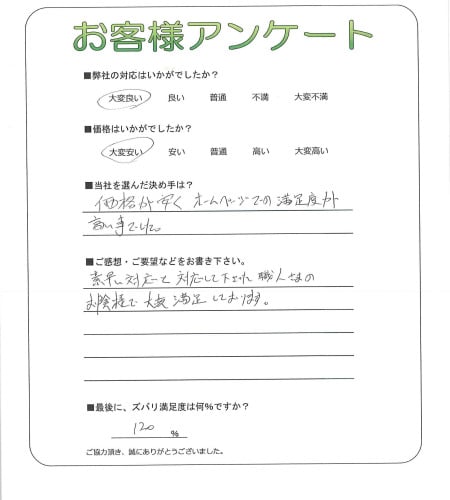 お客様アンケート
■弊社の対応はいかがでしたか?
大変良い 良い 普通 不満 大変不満
■価格はいかがでしたか?
大変安い 安い 普通 高い 大変高い
■当社を選んだ決め手は?
価格が安く ホームページでの満足度が
高い事でした。
■ご感想・ご要望などをお書き下さい。
素早い対応と 対応して下さった 職人さまの
お陰様で大変満足しております。
■最後に、ズバリ満足度は何%ですか?
120 %
ご協力頂き、誠にありがとうございました。